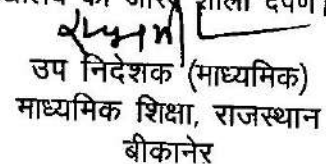 की ओर शाला दर्पण
उप निदेशक (माध्यमिक)
माध्यमिक शिक्षा, राजस्थान
बीकानेर